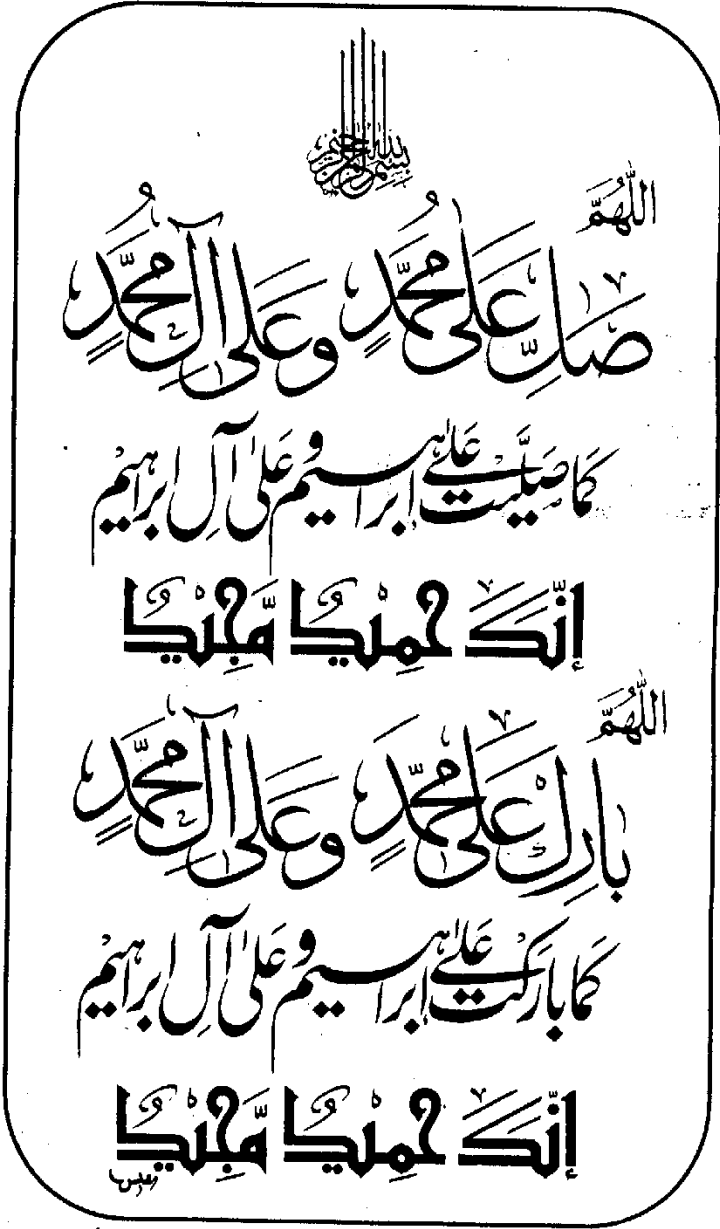 بسم الله الرحمن الرحيم
اللَّهُمَّ
صَلِّ عَلَى مُحَمَّدٍ وَعَلَى آلِ مُحَمَّدٍ
كَمَا صَلَّيْتَ عَلَى إِبْرَاهِيمَ وَعَلَى آلِ إِبْرَاهِيمَ
إِنَّكَ حَمِيْدٌ مَّجِيْدٌ
اللَّهُمَّ
بَارِكْ عَلَى مُحَمَّدٍ وَعَلَى آلِ مُحَمَّدٍ
كَمَا بَارَكْتَ عَلَى إِبْرَاهِيمَ وَعَلَى آلِ إِبْرَاهِيمَ
إِنَّكَ حَمِيْدٌ مَّجِيْدٌ